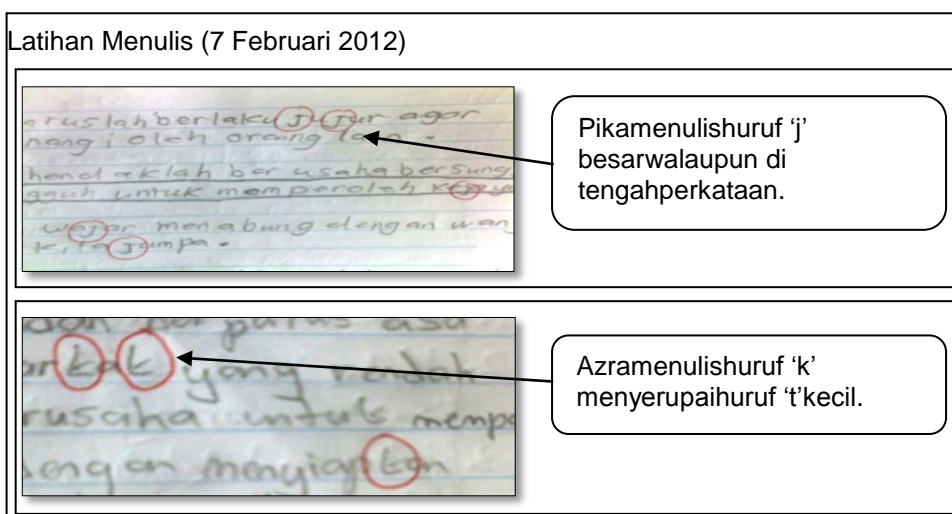 Latihan Menulis (7 Februari 2012)
aruslah berlaku JuJur agar
nangi oleh orang lain.
hendaklah berusaha bersung
gguh untuk memperoleh
waJar menabung dengan wan
kita Jumpa.
Pikamenulishuruf ‘j’
besarwalaupun di
tengahperkataan.
putus asa
yang
rusaha untuk memp
dengan menyiapkan
Azramenulishuruf ‘k’
menyerupaihuruf ‘t’kecil.